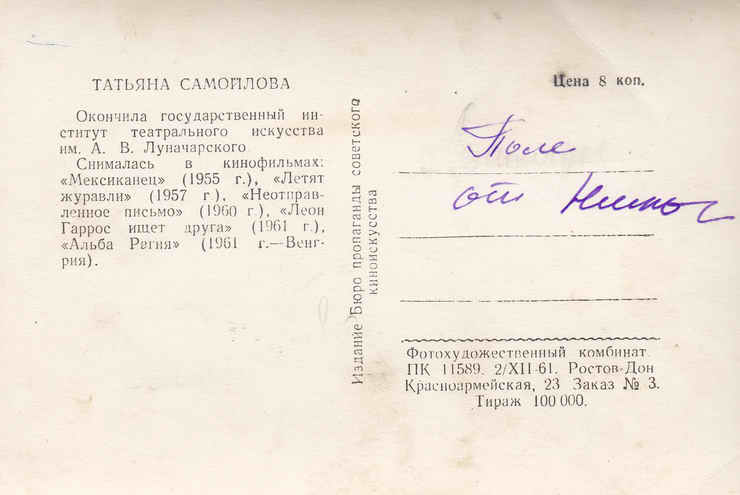 ТАТЬЯНА САМОЙЛОВА
Окончила государственный ин-
ститут театрального искусства
им. А. В. Луначарского
Снималась в кинофильмах:
«Мексиканец» (1955 г.), «Летят
журавли» (1957 г.), «Неотправ-
ленное письмо» (1960 г.), «Леон
Гаррос ищет друга» (1961 г.),
«Альба Регия» (1961 г.—Венг-
рия).
Издание Бюро пропаганды советского
киноискусства
Цена 8 коп.
Поле
от Нины
Фотохудожественный комбинат
ПК 11589. 2/XII-61. Ростов-Дон
Красноармейская, 23 Заказ № 3.
Тираж 100 000.